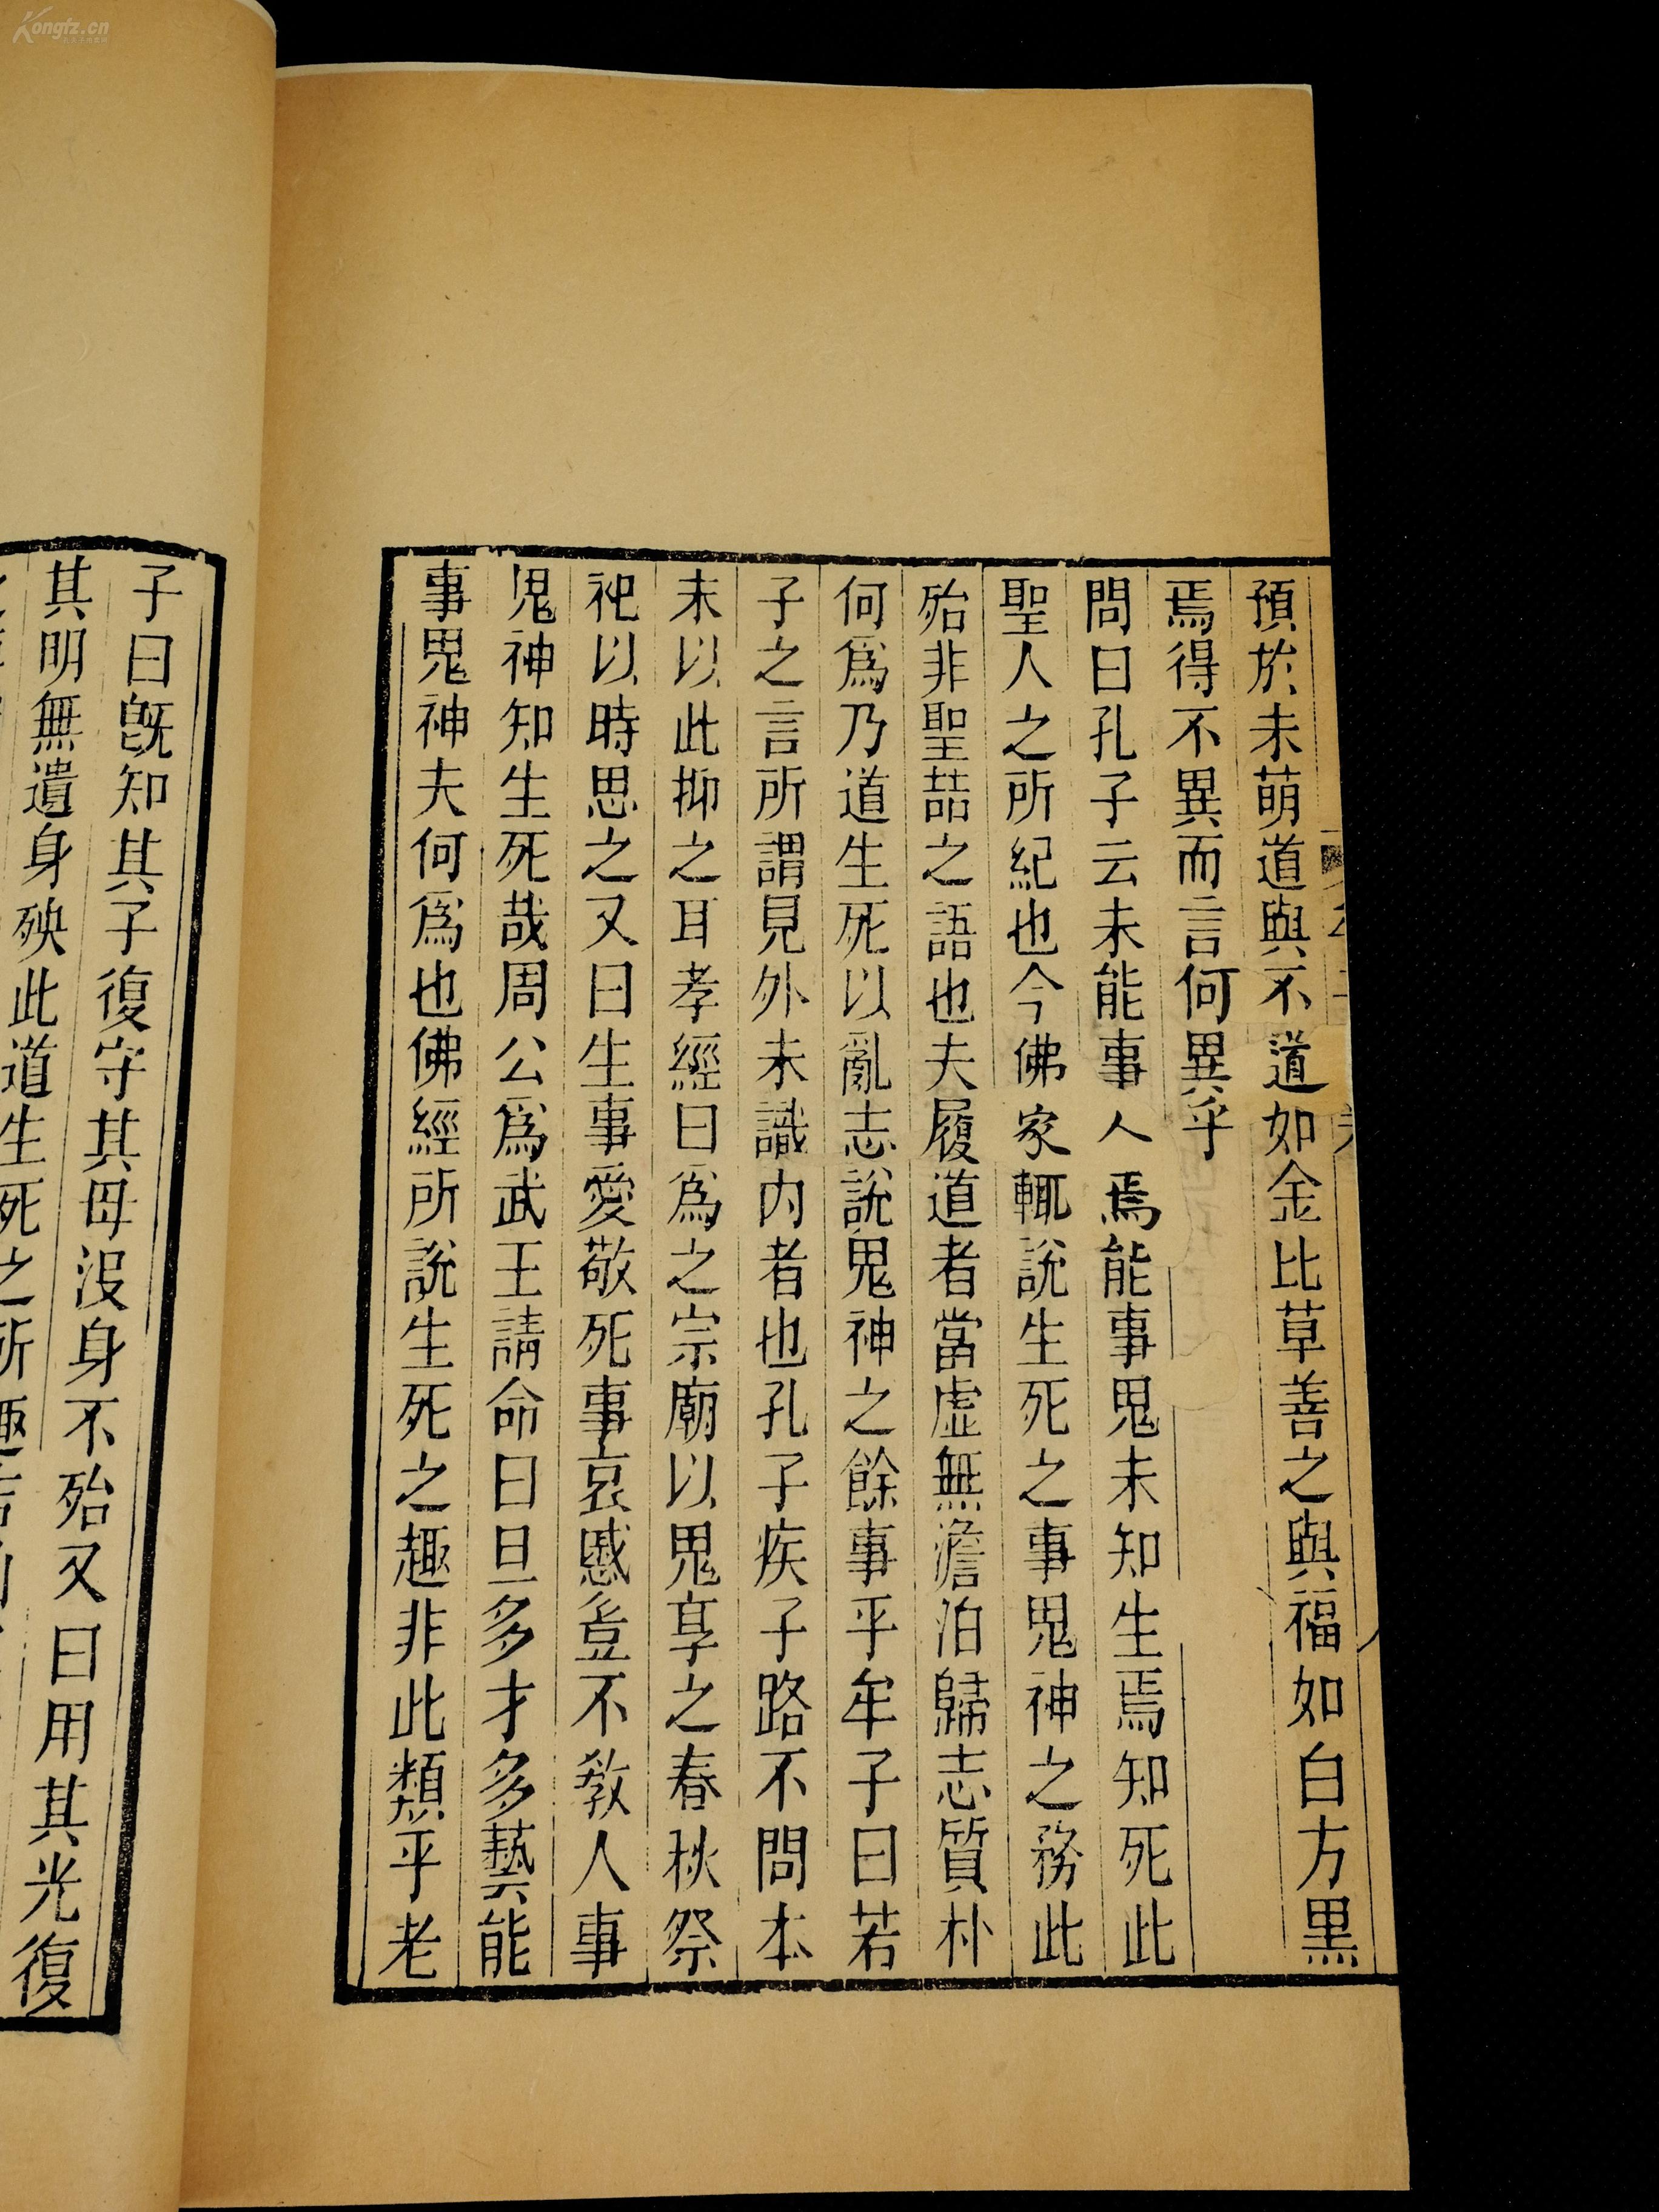 預於未萌道與不道如金比草善之與福如白方黑
焉得不異而言何異乎
問曰孔子云未能事人焉能事鬼未知生焉知死此
聖人之所紀也今佛家輒說生死之事鬼神之務此
殆非聖喆之語也夫履道者當虛無澹泊歸志質朴
何爲乃道生死以亂志說鬼神之餘事乎牟子曰若
子之言所謂見外未識内者也孔子疾子路不問本
末以此抑之耳孝經曰爲之宗廟以鬼享之春秋祭
祀以時思之又曰生事愛敬死事哀慼豈不敎人事
鬼神知生死哉周公爲武王請命曰旦多才多藝能
事鬼神夫何爲也佛經所說生死之趣非此類乎老
子曰旣知其子復守其母没身不殆又曰用其光復
其明無遺身殃此道生死之所趣吉
Kongfz.cn